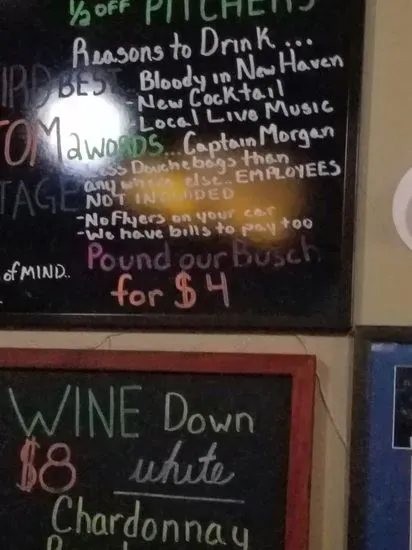 ½ OFF PITCHERS
Reasons to Drink...
BEST - Bloody in New Haven
- New Cocktail
- Local Live Music
2 WORDS... Captain Morgan
Douchebags than
any where else.. EMPLOYEES
NOT INCLUDED
TAGE
- No Flyers on your car
- We have bills to pay too
of MIND..
Pound our Busch
for $4
WINE Down
$8 white
Chardonnay